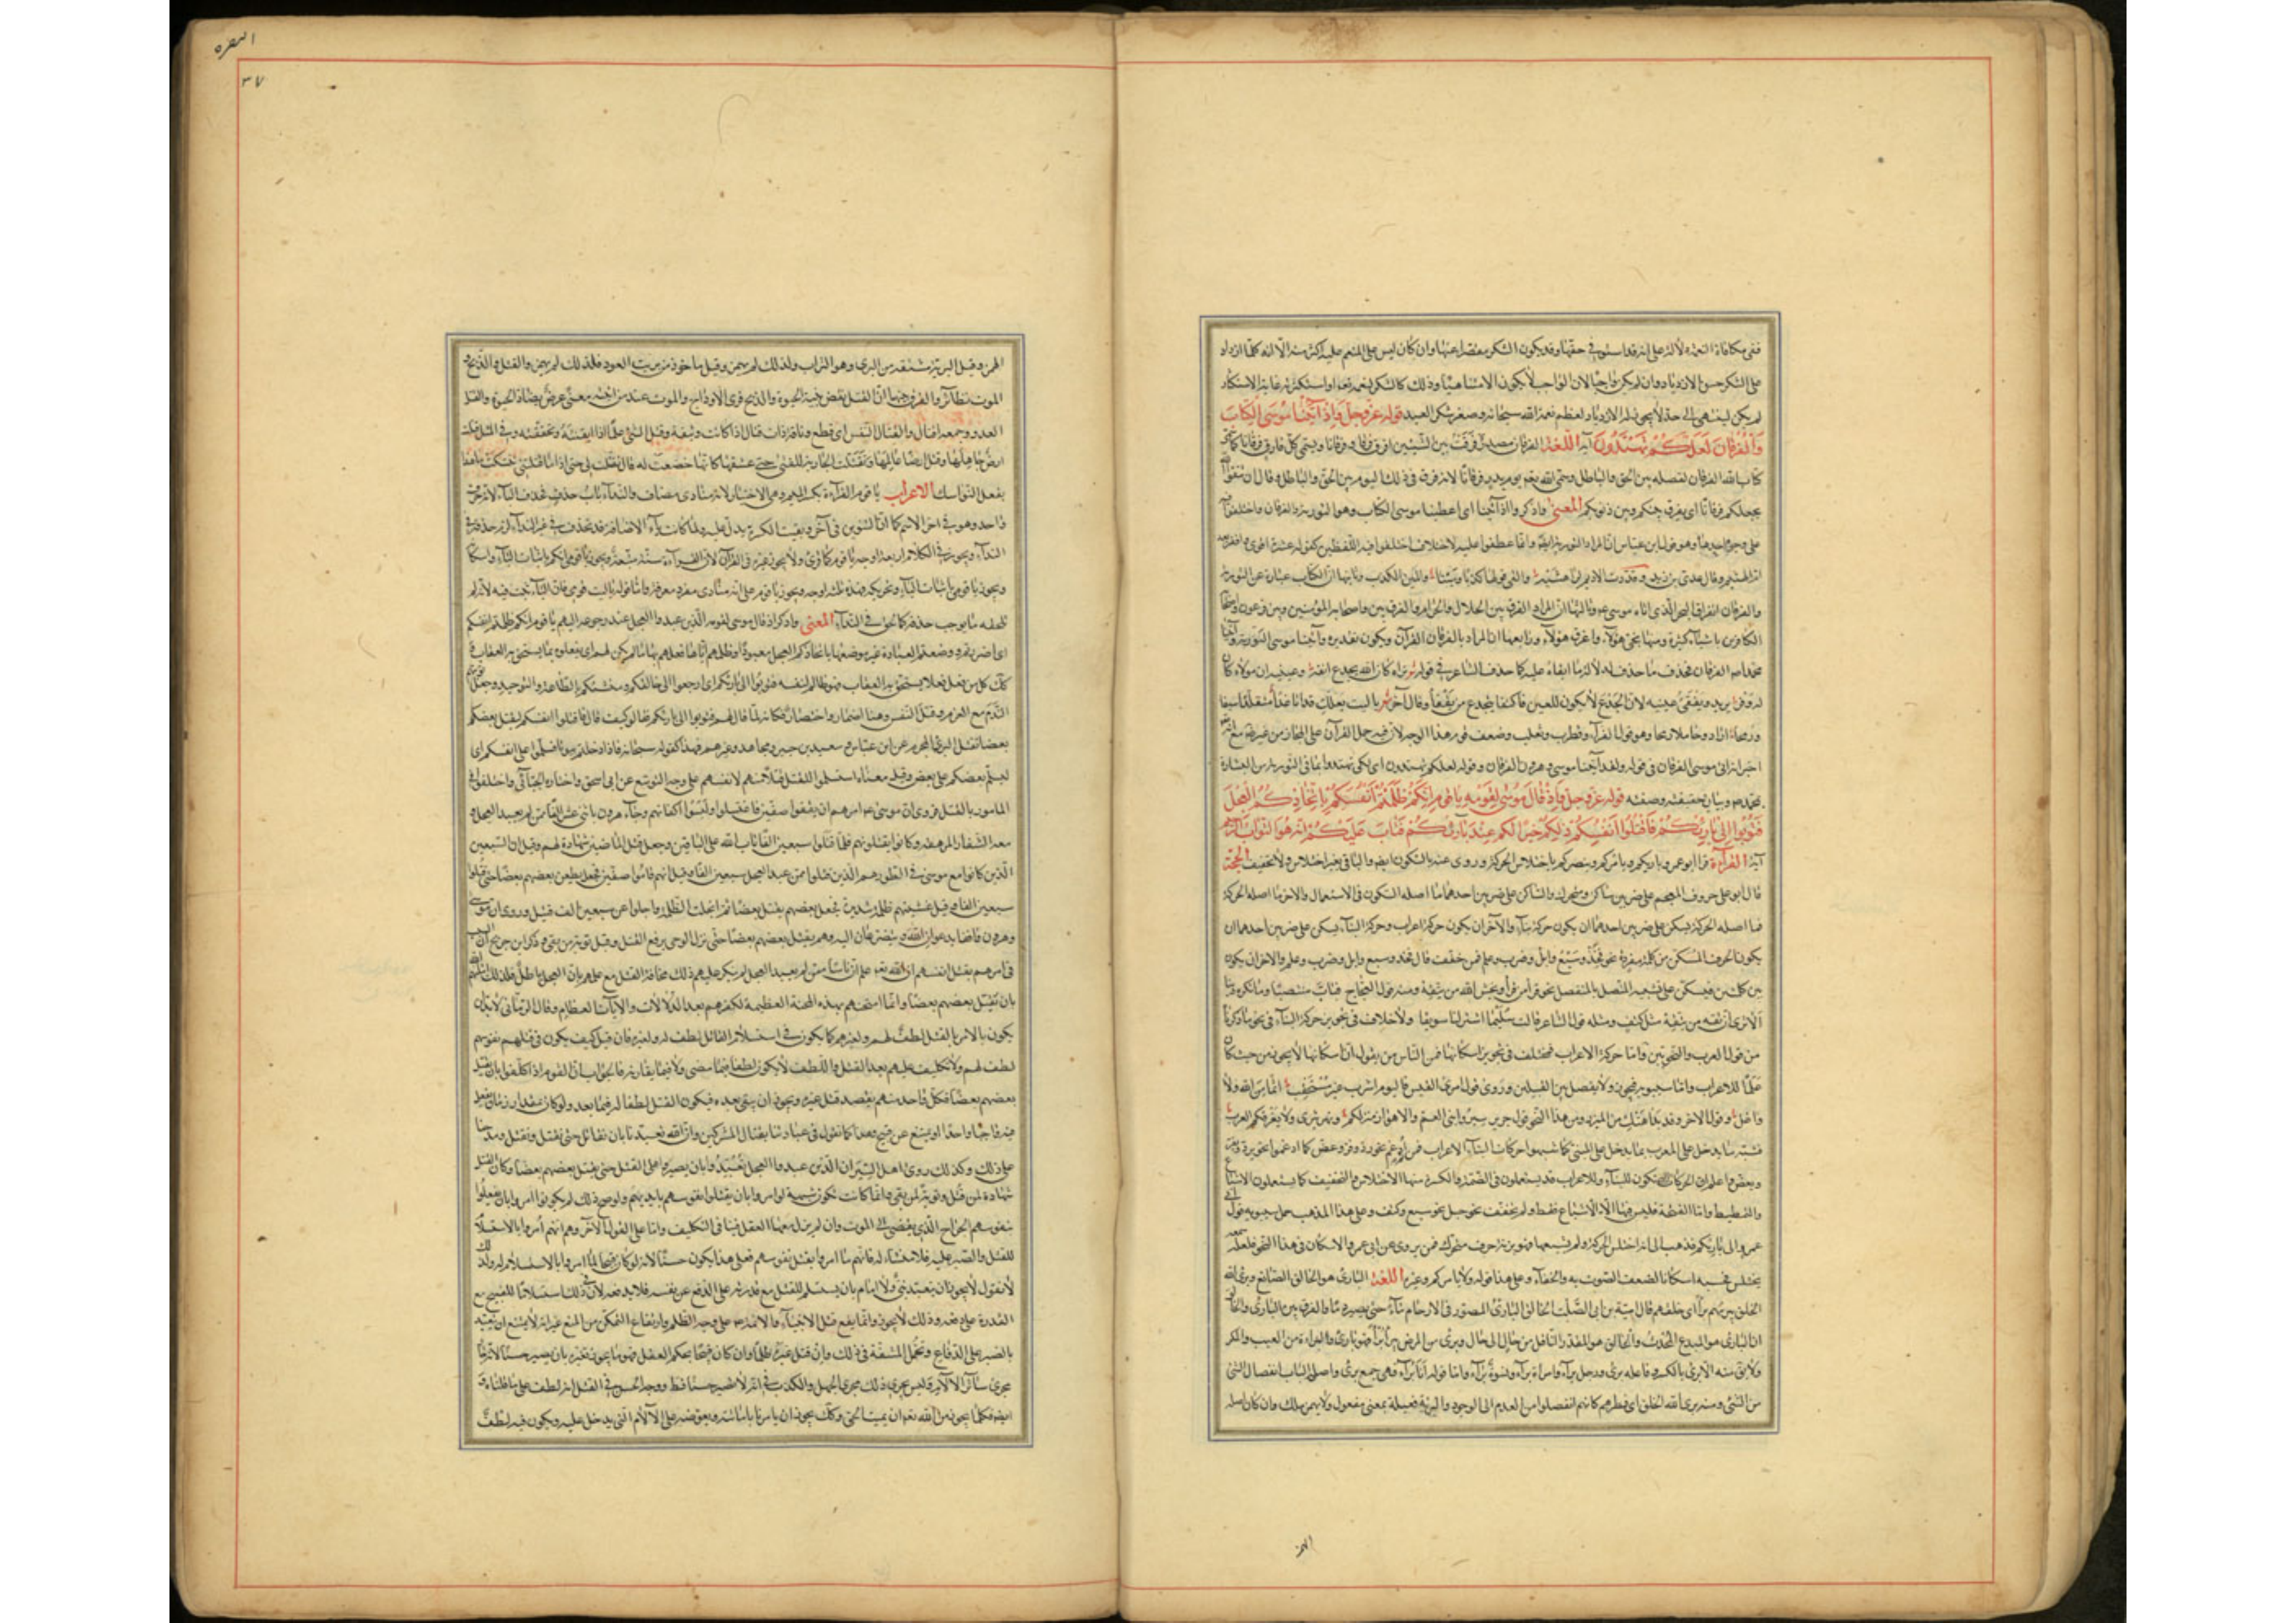 ففي مكافاة النعمة دلالة على انه قد استوفى حقها وقد يكون الشكر مقصرا عنها وان كان ليس على المنعم عليه اكثر منه الا انه كلما ازداد
على الشكر حسن الازدياد وان لم يكن واجبا لان الواجب لا يكون الا متناهيا وذلك كالشكر لنعمه تعم او استكثر غاية الاستكثار
لم يكن لينتهي الى حد لا يجوز له الازدياد لعظم نعم الله سبحانه وصغر شكر العبد قوله عز وجل وَإِذْ آتَيْنَا مُوسَى الْكِتَابَ
وَالْفُرْقَانَ لَعَلَّكُمْ تَهْتَدُونَ آية اللغة الفرقان مصدر فرقت بين الشيئين افرق فرقا وفرقانا ويسمى كل فارق فرقانا كما سمي
كتاب الله الفرقان لفصله بين الحق والباطل وسمى الله تعم يوم بدر يوم فرقانا لانه فرق في ذلك اليوم بين الحق والباطل وقال ان تتقوا الله
يجعل لكم فرقانا اى يفرق بينكم وبين ذنوبكم المعنى واذكروا اذ آتينا اى اعطينا موسى الكتاب وهو التورية والفرقان واختلفوا فيه
على وجوه احدها وهو قول ابن عباس ان المراد التورية ايضا وانما عطفوا عليه لاختلاف اللفظين كقول عنترة اقوى واقفر بعد
ام الهيثم وقال عدى بن زيد وقدّدت الاديم لراهشيه والفى قولها كذبا ومينا والمين الكذب وثانيها ان الكتاب عبارة عن التورية
والفرقان انفراق البحر الذى اتاه موسى ع وثالثها ان المراد الفرق بين الحلال والحرام والفرق بين موسى واصحابه المؤمنين وبين فرعون واصحابه
الكافرين باشياء كثيرة ومنها نجى هؤلاء واغرق هؤلاء ورابعها ان المراد بالفرقان القرآن ويكون تقديره وآتينا موسى التورية وآتينا
محمد ص الفرقان فحذف ما حذف لدلالة ما ابقاه عليه كما حذف الشاعر في قوله تراه كان الله يجدع انفه وعينيه ان مولاه كان
له وفر يريد ويفقئ عينيه لان الجدع لا يكون للعين فاكتفى بيجدع من يفقأ وقال آخر يا ليت بعلك قد غدا متقلدا سيفا
ورمحا اراد وحاملا رمحا وهو قول الفراء وقطرب وثعلب وضعف قوم هذا الوجه لان فيه حمل القرآن على المجاز من غير ضرورة مع انه تعم
اخبر انه اتى موسى الفرقان في قوله ولقد آتينا موسى وهرون الفرقان وقوله لعلكم تهتدون اى لكى تهتدوا بما في التورية من البشارة
بمحمد ص وبيان صفته قوله عز وجل وَإِذْ قَالَ مُوسَى لِقَوْمِهِ يَا قَوْمِ إِنَّكُمْ ظَلَمْتُمْ أَنْفُسَكُمْ بِاتِّخَاذِكُمُ الْعِجْلَ
فَتُوبُوا إِلَى بَارِئِكُمْ فَاقْتُلُوا أَنْفُسَكُمْ ذَلِكُمْ خَيْرٌ لَكُمْ عِنْدَ بَارِئِكُمْ فَتَابَ عَلَيْكُمْ إِنَّهُ هُوَ التَّوَّابُ الرَّحِيمُ
آية القرآءة قرأ ابو عمرو بارئكم ويامركم وينصركم باختلاس الحركة وروى عنه بالسكون ايضا والباقي بغير اختلاس ولا تخفيف الحجة
قال ابو على حروف المعجم على ضربين ساكن ومتحرك والساكن على ضربين احدهما ما اصله السكون في الاستعمال والاخر ما اصله الحركة
فما اصله الحركة يسكن على ضربين احدهما ان يكون حركة بناء والآخر ان يكون حركة اعراب وحركة البناء يسكن على ضربين احدهما ان
يكون الحرف المسكن من كلمة مفردة نحو فخذ وسبع وابل وضرب وعلم فمن خفف قال فخذ وسبع وابل وضرب وعلم والاخر ان يكون
من كلمتين فيسكن على تشبيه المنفصل بالمتصل نحو
الا ترى ان تقه من يتقه مثل كتف ومثله قول الشاعر قالت سليمى اشتر لنا سويقا ولا خلاف في تجويز حركة البناء في نحو ما ذكرنا
من قول العرب والنحويين واما حركة الاعراب فمختلف في تجويز اسكانها فمن الناس من يقول ان اسكانها لا يجوز من حيث كان
علما للاعراب واما سيبويه فيجوز ولا يفصل بين القبيلين وروى قول امرئ القيس فاليوم اشرب غير مستحقب اثما من الله ولا
واغل وقول الاخر وقد بدا هنك من المئزر ومن هذا النحو قول جرير سيروا بني العم والاهواز منزلكم ونهر تيرى ولا تعرفكم العرب
فشبه ما يدخل على المعرب بما يدخل على المبنى كما شبهوا حركات البناء بحركات الاعراب فمن ثم ادغم نحو رد وفر وعض كما ادغموا نحو يرد ويفر
ويعض واعلم ان الحركات التي تكون للبناء والاعراب قد يستعملون في الضمة والكسرة منها الاختلاس والتخفيف كما يستعملون الاشباع
والتمطيط واما الفتحة فليس فيها الا الاشباع فقط ولم يخفف نحو جمل كما خفف نحو سبع وكتف وعلى هذا المذهب حمل سيبويه قول ابى
عمرو الى بارئكم فذهب الى انه اختلس الحركة ولم يشبعها فهو بزنة حرف متحرك فمن روى عن ابى عمرو الاسكان في هذا النحو فلعله سمعه
يختلس فحسبه اسكانا لضعف الصوت به والخفاء وعلى هذا قوله ولا يامركم وغيره اللغة البارئ هو الخالق الصانع وبرأ الله
الخلق يبرأهم برءا اى خلقهم قال امية بن ابى الصلت الخالق البارئ المصور في الارحام ماء حتى يصير دما والفرق بين البارئ والخالق
ان البارئ هو المبدع المحدث والخالق هو المقدر الناقل من حال الى حال وبرئ من المرض يبرأ برءا فهو بارئ والبراءة من العيب والمكروه
لا يقال منه الا برئ بالكسر وفاعله برئ ورجل براء وامرأة براء ونسوة براء واما قوله انا برآء فهو جمع برئ واصل الباب انفصال الشئ
من الشئ ومنه برأ الله الخلق اى فطرهم كانهم انفصلوا من العدم الى الوجود والبرية فعيلة بمعنى مفعول ولا يهمز ملك وان كان اصله
البقره
۳۷
الهمز وقيل البرية مشتقة من البرى وهو التراب ولذلك لم يهمز وقيل ماخوذ من بريت العود فلذلك لم يهمز والقتل والذبح و
الموت نظائر والفرق بينها ان القتل نقض بنية الحيوة والذبح فرى الاوداج والموت عند من اثبته معنى عرض يضاد الحيوة والقتل
العدو وجمعه اقتال والقتال النفس اى قطع وناقة ذات قتال اذا كانت وثيقة وقتل الشئ علما اذا ايقنته وتحققته وفى المثل قتلت
ارض جاهلها وقتل ارضا عالمها وتقتلت الجارية للفتى حتى عشقها كانها خضعت له قال تقتلت لى حتى اذا ما قتلتنى تنسكت ما هذا
بفعل النواسك الاعراب يا قوم القراءة بكسر الميم وهو الاختيار لانه منادى مضاف والنداء باب حذف فحذف الياء لانه حرف
واحد وهو في اخر الاسم كما ان التنوين في آخره وبقيت الكسرة تدل عليه ولما كانت ياء الاضافة قد تحذف في غير النداء لزم حذفه في
النداء ويجوز في الكلام اربعة اوجه يا قوم كما قرئ ولا يجوز غيره في القرآن لان القراءة سنة متبعة ويجوز يا قومي انكم باثبات الياء واسكانها
ويجوز يا قومي باثبات الياء وتحريكه فهذه ثلثة اوجه ويجوز يا قوم على انه منادى مفرد معرفة واما قوله يا ليت قومي فان الياء ثبتت فيه لانه لم
يلحقه ما يوجب حذفه كما لحق في النداء المعنى واذكروا اذ قال موسى لقومه الذين عبدوا العجل عند رجوعه اليهم يا قوم انكم ظلمتم انفسكم
اى اضررتم بها ووضعتم العبادة غير موضعها باتخاذكم العجل معبودا وظلمهم اياها فعلهم بها ما لم يكن لهم ان يفعلوه مما يستحق به العقاب
كل من فعل فعلا يستحق به العقاب فهو ظالم لنفسه فتوبوا الى بارئكم اى ارجعوا الى خالقكم ومنشئكم بالطاعة والتوحيد وجعل توبتهم
الندم مع العزم وقتل النفس وهنا اضمار واختصار فكانه لما قال لهم فتوبوا الى بارئكم قالوا كيف قال فاقتلوا انفسكم ليقتل بعضكم
بعضا يقتل البرئ المجرم عن ابن عباس وسعيد بن جبير ومجاهد وغيرهم وهذا كقوله سبحانه فاذا دخلتم بيوتا فسلموا على انفسكم اى
ليسلم بعضكم على بعض وقيل معناه استسلموا للقتل فجعل استسلامهم للقتل قتلا منهم لانفسهم على وجه التوسع عن ابن اسحق واختاره الجبائى واختلفوا في
المامور بالقتل فروى ان موسى ع امرهم ان يقوموا صفين فاغتسلوا ولبسوا اكفانهم وجاء هرون باثنى عشر الفا ممن لم يعبد العجل و
معه الشفار المرهفة وكانوا يقتلونهم فلما قتلوا سبعين الفا تاب الله على الباقين وجعل قتل الماضين شهادة لهم وقيل ان السبعين
الذين كانوا مع موسى في الطور هم الذين قتلوا ممن عبد العجل سبعين الفا وقيل انهم قاموا صفين فجعل يطعن بعضهم بعضا حتى قتلوا
سبعين الفا وقيل غشيتهم ظلمة شديدة فجعل بعضهم يقتل بعضا ثم انجلت الظلمة فاجلوا عن سبعين الف قتيل وروى ان موسى
وهرون وقفا يدعوان الله ويتضرعان اليه وهم يقتل بعضهم بعضا حتى نزل الوحى برفع القتل وقبل توبة من بقى وذكر ابن جريج ان السبب
في امرهم بقتل انفسهم ان الله تعم علم ان ناسا ممن لم يعبد العجل لم ينكروا عليهم ذلك مخافة القتل مع علمهم بان العجل باطل فلذلك ابتلاهم الله
بان يقتل بعضهم بعضا وانما امتحنهم بهذه المحنة العظيمة لكفرهم بعد الدلالات والآيات العظام وقال الرمانى لا بد ان
يكون بالامر بالقتل لطف لهم ولغيرهم كما يكون في استسلام القاتل لطف له ولغيره فان قيل كيف يكون في قتلهم نفوسهم
لطف لهم ولا تكليف عليهم بعد القتل واللطف لا يكون لطفا فيما مضى ولا فيما يقارنه فالجواب ان القوم اذا كلفوا بان يقتل
بعضهم بعضا فكل واحد منهم يقصد قتل غيره ويجوز ان يبقى بعده فيكون القتل لطفا له فيما بعد ولو كان بمقدار زمان يفعل
فيه واجبا واحدا او يمتنع عن قبيح وهذا كما نقول في عبادتنا بقتال المشركين وان الله تعبدنا بان نقاتل حتى نقتل ونقتل ومدحنا
على ذلك وكذلك روى اهل السير ان الذين عبدوا العجل تعبدوا بان يصبروا على القتل حتى يقتل بعضهم بعضا وكان القتل
شهادة لمن قتل وتوبة لمن بقى وانما كانت تكون شبهة لو امروا بان يقتلوا نفوسهم بايديهم ولو صح ذلك لم يكونوا امروا بان يفعلوا
بنفوسهم الجراح الذى يفضى الى الموت وان لم يزل معها العقل فينافى التكليف واما على القول الآخر وهو انهم امروا بالاستسلام
للقتل والصبر عليه فلا مسئلة لانهم ما امروا بقتل نفوسهم فعلى هذا يكون حسنا لانه لو كان قبيحا لما امروا بالاستسلام له ولذلك
لا نقول لا يجوز ان يتعبد نبى ولا امام بان يستسلم للقتل مع قدرته على الدفع عن نفسه فلا يدفعه لان في ذلك استسلاما للقبيح مع
القدرة على دفعه وذلك لا يجوز وانما يقع قتل الانبياء والائمة ع على وجه الظلم وارتفاع التمكن من المنع غير انه لا يمتنع ان يتعبد
بالصبر على الدفاع وتحمل المشقة في ذلك وان قتل غيره ظلما وان كان قبيحا بحكم العقل فهو مما يجوز تغيره بان يصير حسنا لانه جار
مجرى سائر الآلام وليس يجرى ذلك مجرى الجهل والكذب في انه لا يصير حسنا قط ووجه الحسن في القتل انه لطف على ما قلناه و
ايضا فكما يجوز من الله تعم ان يميت الحى وكذلك يجوز ان يامرنا باماتته ويعوضه على الآلام التي يدخل عليه ويكون فيه لطف